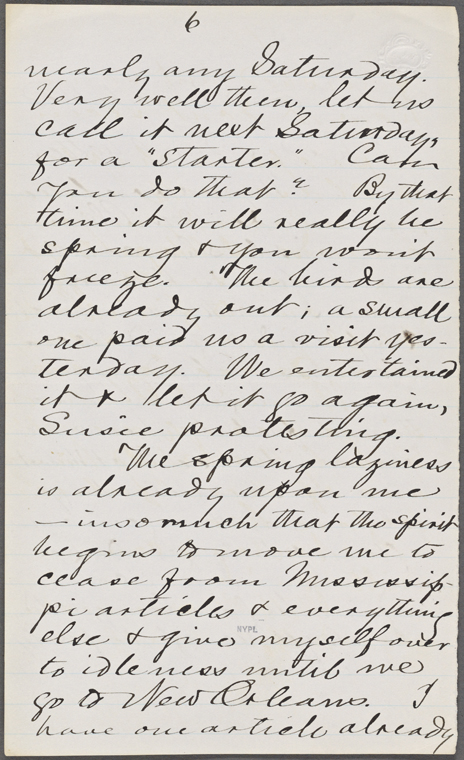 6
nearly any Saturday.
Very well then, let us
call it next Saturday,
for a "starter." Can
you do that? By that
time it will really be
spring & you won't
freeze. The birds are
already out; a small
one paid us a visit yes-
terday. We entertained
it & let it go again,
Susie protesting.
The spring laziness
is already upon me
— insomuch that the spirit
begins to move me to
cease from Mississip-
pi articles & everything
else & give myself over
to idleness until we
go to New Orleans. I
have one article already
NYPL